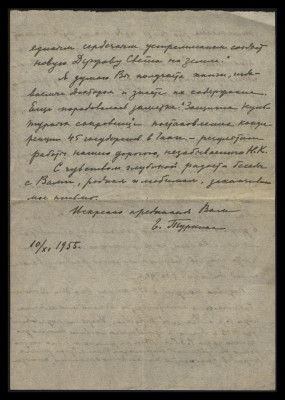 единым сердечным устремлением создать
новую Державу Света на земле.
Я думаю Вы получаете книги, изда-
и знаете их содержание.
Еще порадовала заметка: "Защита куль-
турных сокровищ" постановление конфе-
ренции 45 государств в Гааге - результат
работы нашего дорогого, незабвенного Н.К.
С чувством глубокой радости беседы
с Вами, родная и любимая, заканчиваю
мое письмо.
Искренно преданная Вам
Е. Туркина
10/XI. 1955.